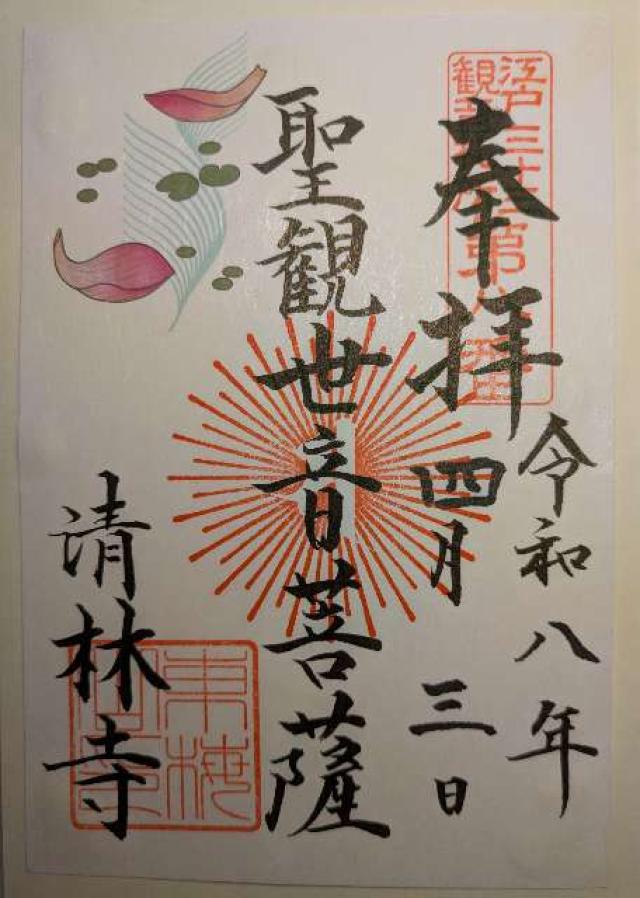 江戸三十三
観音
第八番
奉拝
令和八年
四月三日
聖観世音菩薩
清林寺
東梅